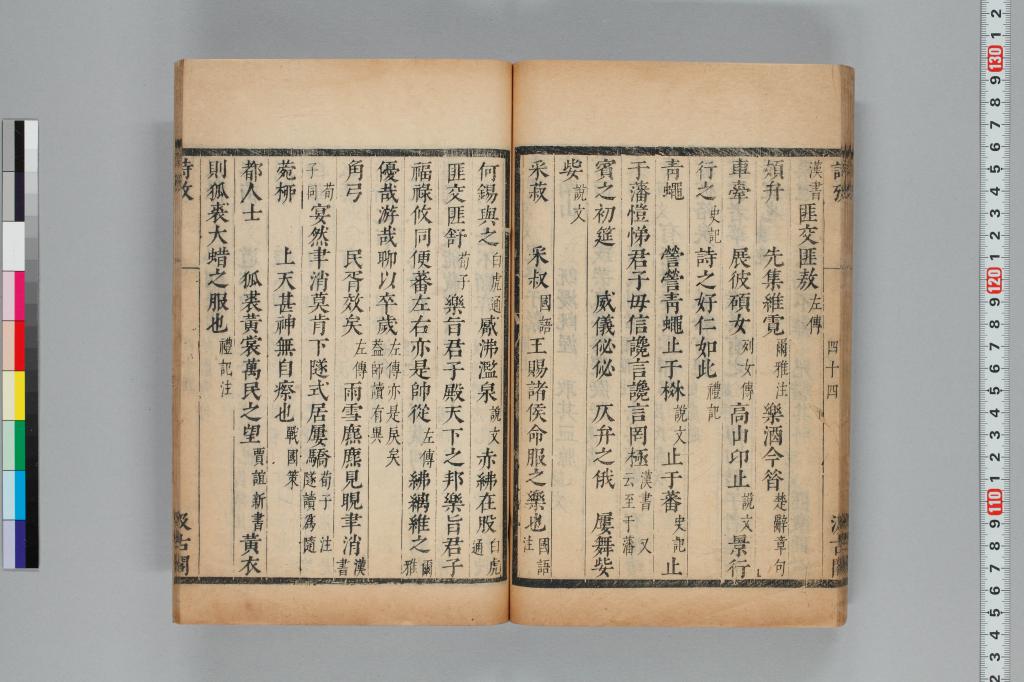 漢書匪交匪敖左傳
頍弁 先集維霓爾雅注樂酒今昔楚辭章句
車舝 展彼碩女列女傳高山卬止說文景行
行之史記詩之好仁如此禮記
青蠅 營營青蠅止于棥說文止于蕃史記止
于藩愷悌君子毋信讒言讒言罔極漢書又云至于藩
賓之初筵 威儀佖佖 仄弁之俄 屢舞姕
姕說文
采菽 采叔國語王賜諸侯命服之樂也國語注
四十四
何錫與之白虎通觱沸濫泉說文赤紼在股白虎通
匪交匪舒荀子樂旨君子殿天下之邦樂旨君子
福祿攸同便蕃左右亦是帥從左傳紼縭維之爾雅
優哉游哉聊以卒歲左傳亦是戾矣蓋師讀有異
角弓 民胥效矣左傳雨雪麃麃見晛聿消漢書
荀子同宴然聿消莫肯下隧式居屢驕荀子注馮隧讀為隨
菀柳 上天甚神無自瘵也戰國策
都人士 狐裘黃裳萬民之望賈誼新書黃衣
則狐裘大蜡之服也禮記注
詩攷
汲古閣